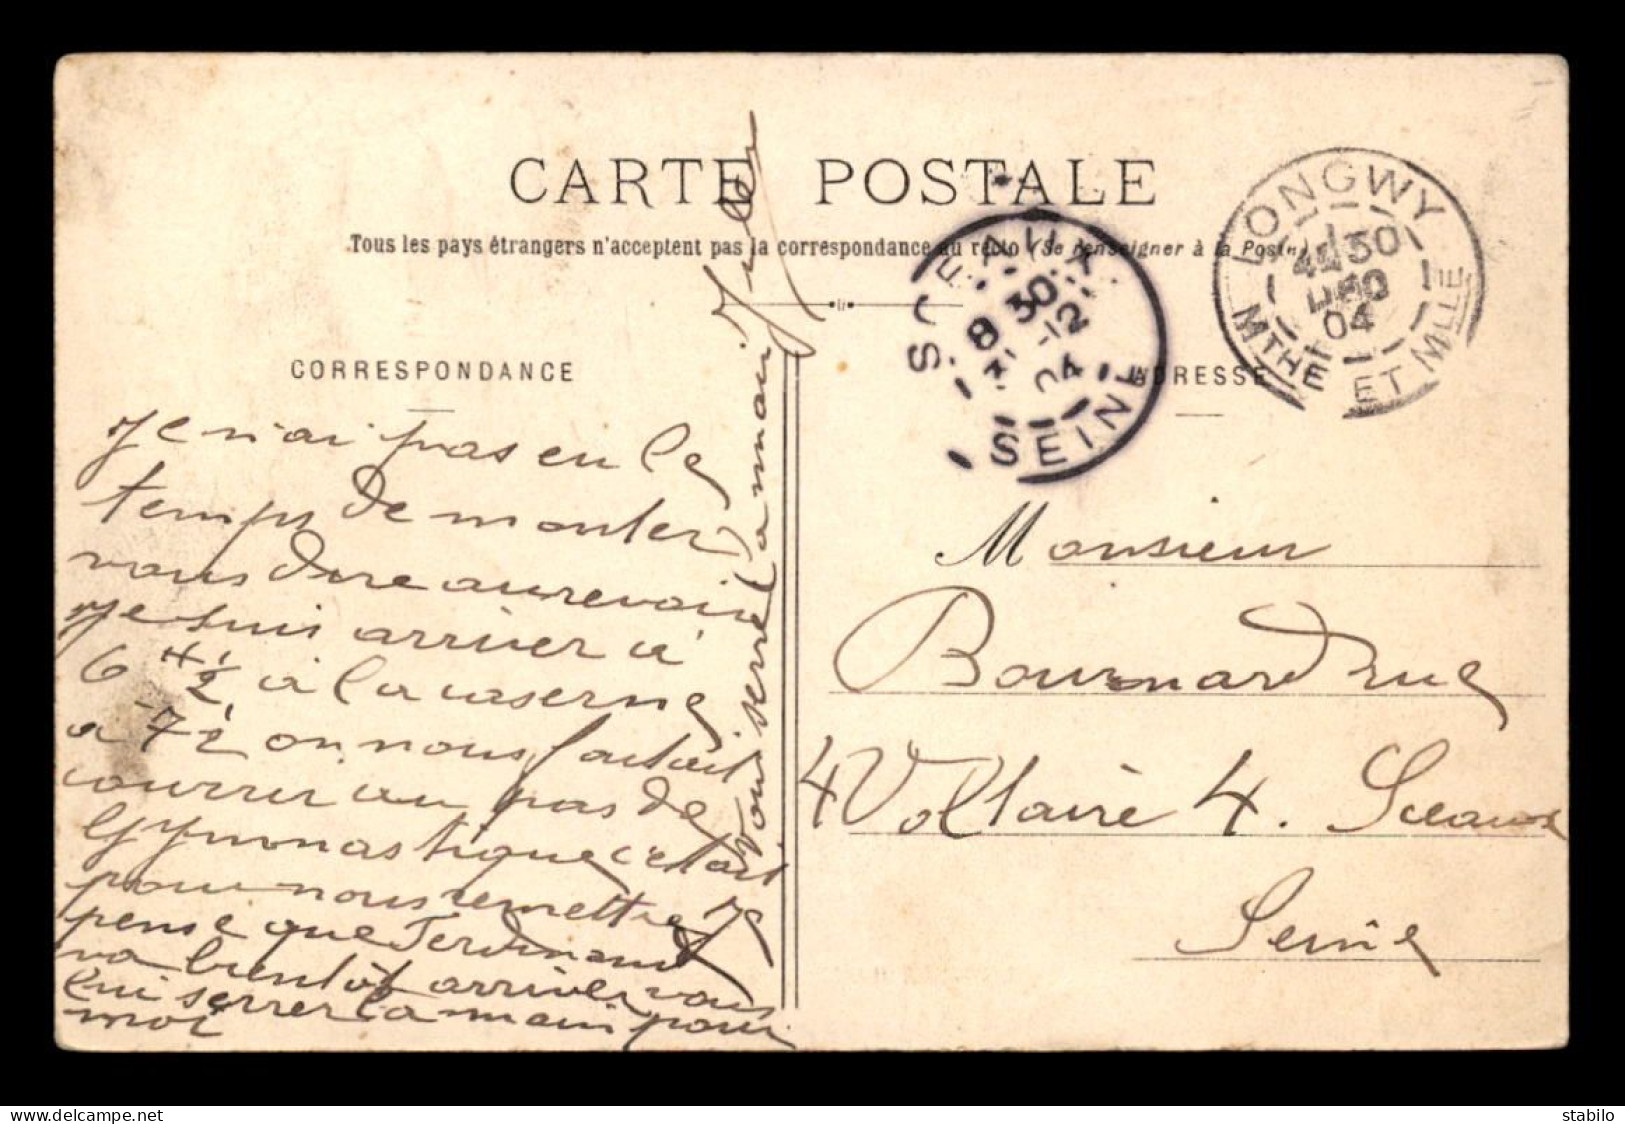 CARTE POSTALE
Tous les pays étrangers n'acceptent pas la correspondance au recto (Se renseigner à la Poste)
CORRESPONDANCE
ADRESSE
LONGWY
4E 30
DEC
04
MTHE ET MLLE
SCEAUX
8 30
31 -12
04
SEINE
Je n'ai pas eu le
temps de monter
vous dire aurevoir
je suis arriver à
6 H 1/2 à la caserne
a 7 1/2 on nous foutait
courrir au pas de
gymnastique c'etait
pour nous remettre Je
pense que Ferdinand
va bientôt arriver vous
lui serrer la main pour
moi
Vous serre la main
Jules
Monsieur
Bournard rue
4 Voltaire 4. Sceaux
Seine
delcampe.net
stabilo